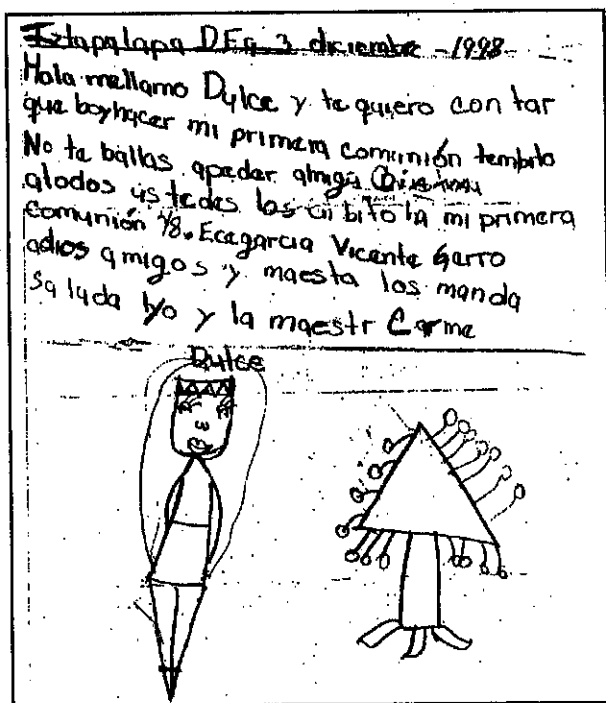 Iztapalapa DFa 3 diciembre - 1998
Hola mellamo Dulce y te quiero con tar
que boyhacer mi primera comunión
No te ballas apedar amiga
atodos us tedes los in bito la mi primera
comunión Vicente Garro
adios a migos y maesta los manda
Sa luda yo y la maestr Carme
Dulce